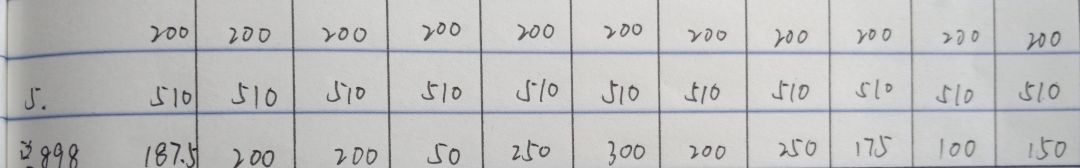 200 200 200 200 200 200 200 200 200 200 200
5. 510 510 510 510 510 510 510 510 510 510 510
898 187.5 200 200 50 250 300 200 250 175 100 150